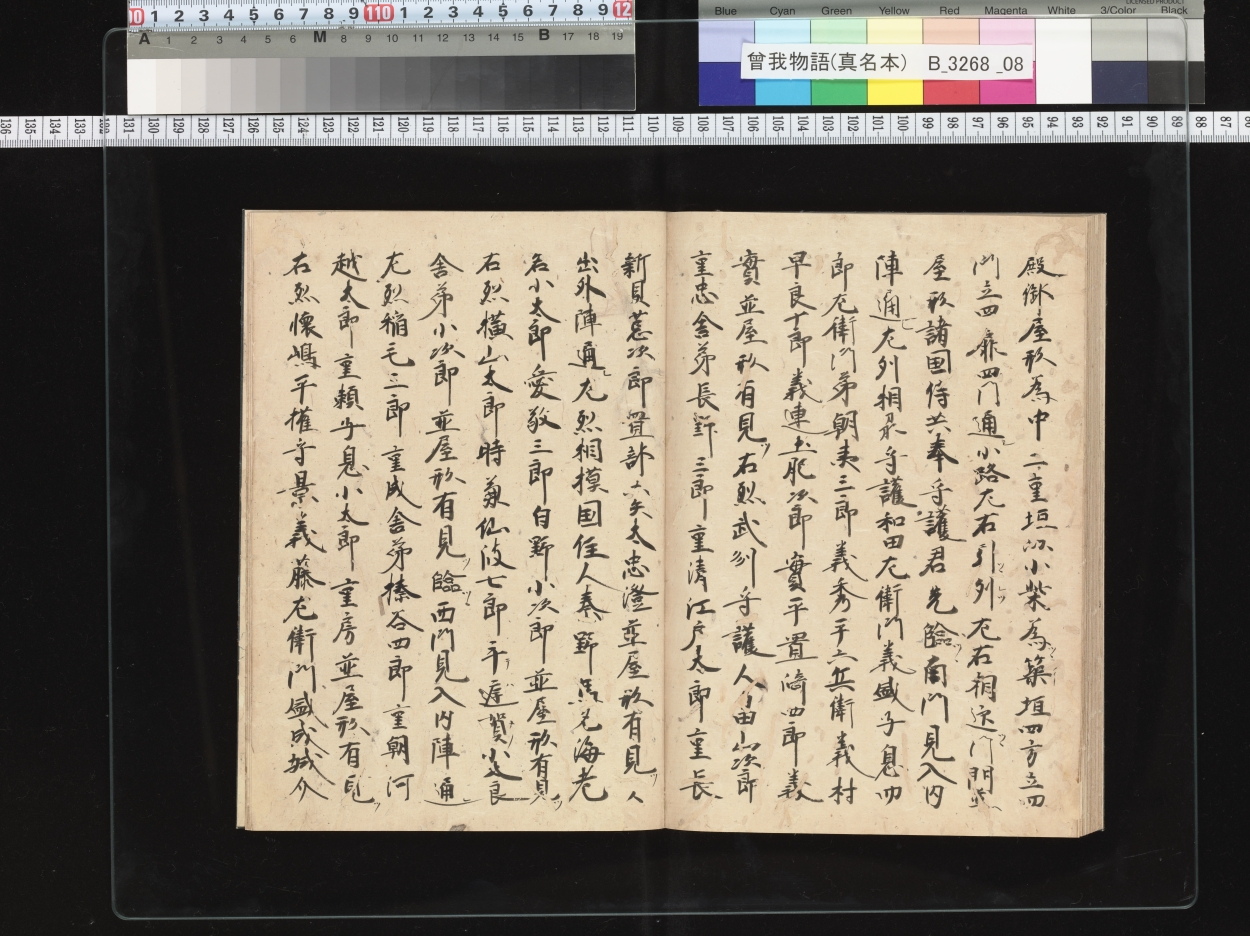 曾我物語(真名本) B_3268_08
Blue Cyan Green Yellow Red Magenta White 3/Color Black
殿御屋形為中二重垣以小柴為築垣四方立四
門立四 四門通小路左右引列左右相近門門
屋形諸国侍共奉守護君先臨南門見入内
陣通左列相 守護和田左衛門義盛子息四
郎左衛門弟朝夷三郎義秀平六兵衛義村
早良十郎義連土肥次郎實平置崎四郎義
實並屋形有見右烈武刕守護人畠山次郎
重忠舎弟長野三郎重清江戸太郎重長
新貝荒次郎 六矢太忠澄並屋形有見
出外陣通左烈相模国住人秦野 海老
名小太郎愛敬三郎白野小次郎並屋形有見
右烈横山太郎時兼仙波七郎平 賀小太良
舎弟小次郎並屋形有見臨西門見入内陣通
左烈稲毛三郎重成舎弟榛谷四郎重朝河
越太郎重頼子息小太郎重房並屋形有見
右烈懐嶋平権守景義藤左衛門盛成城介